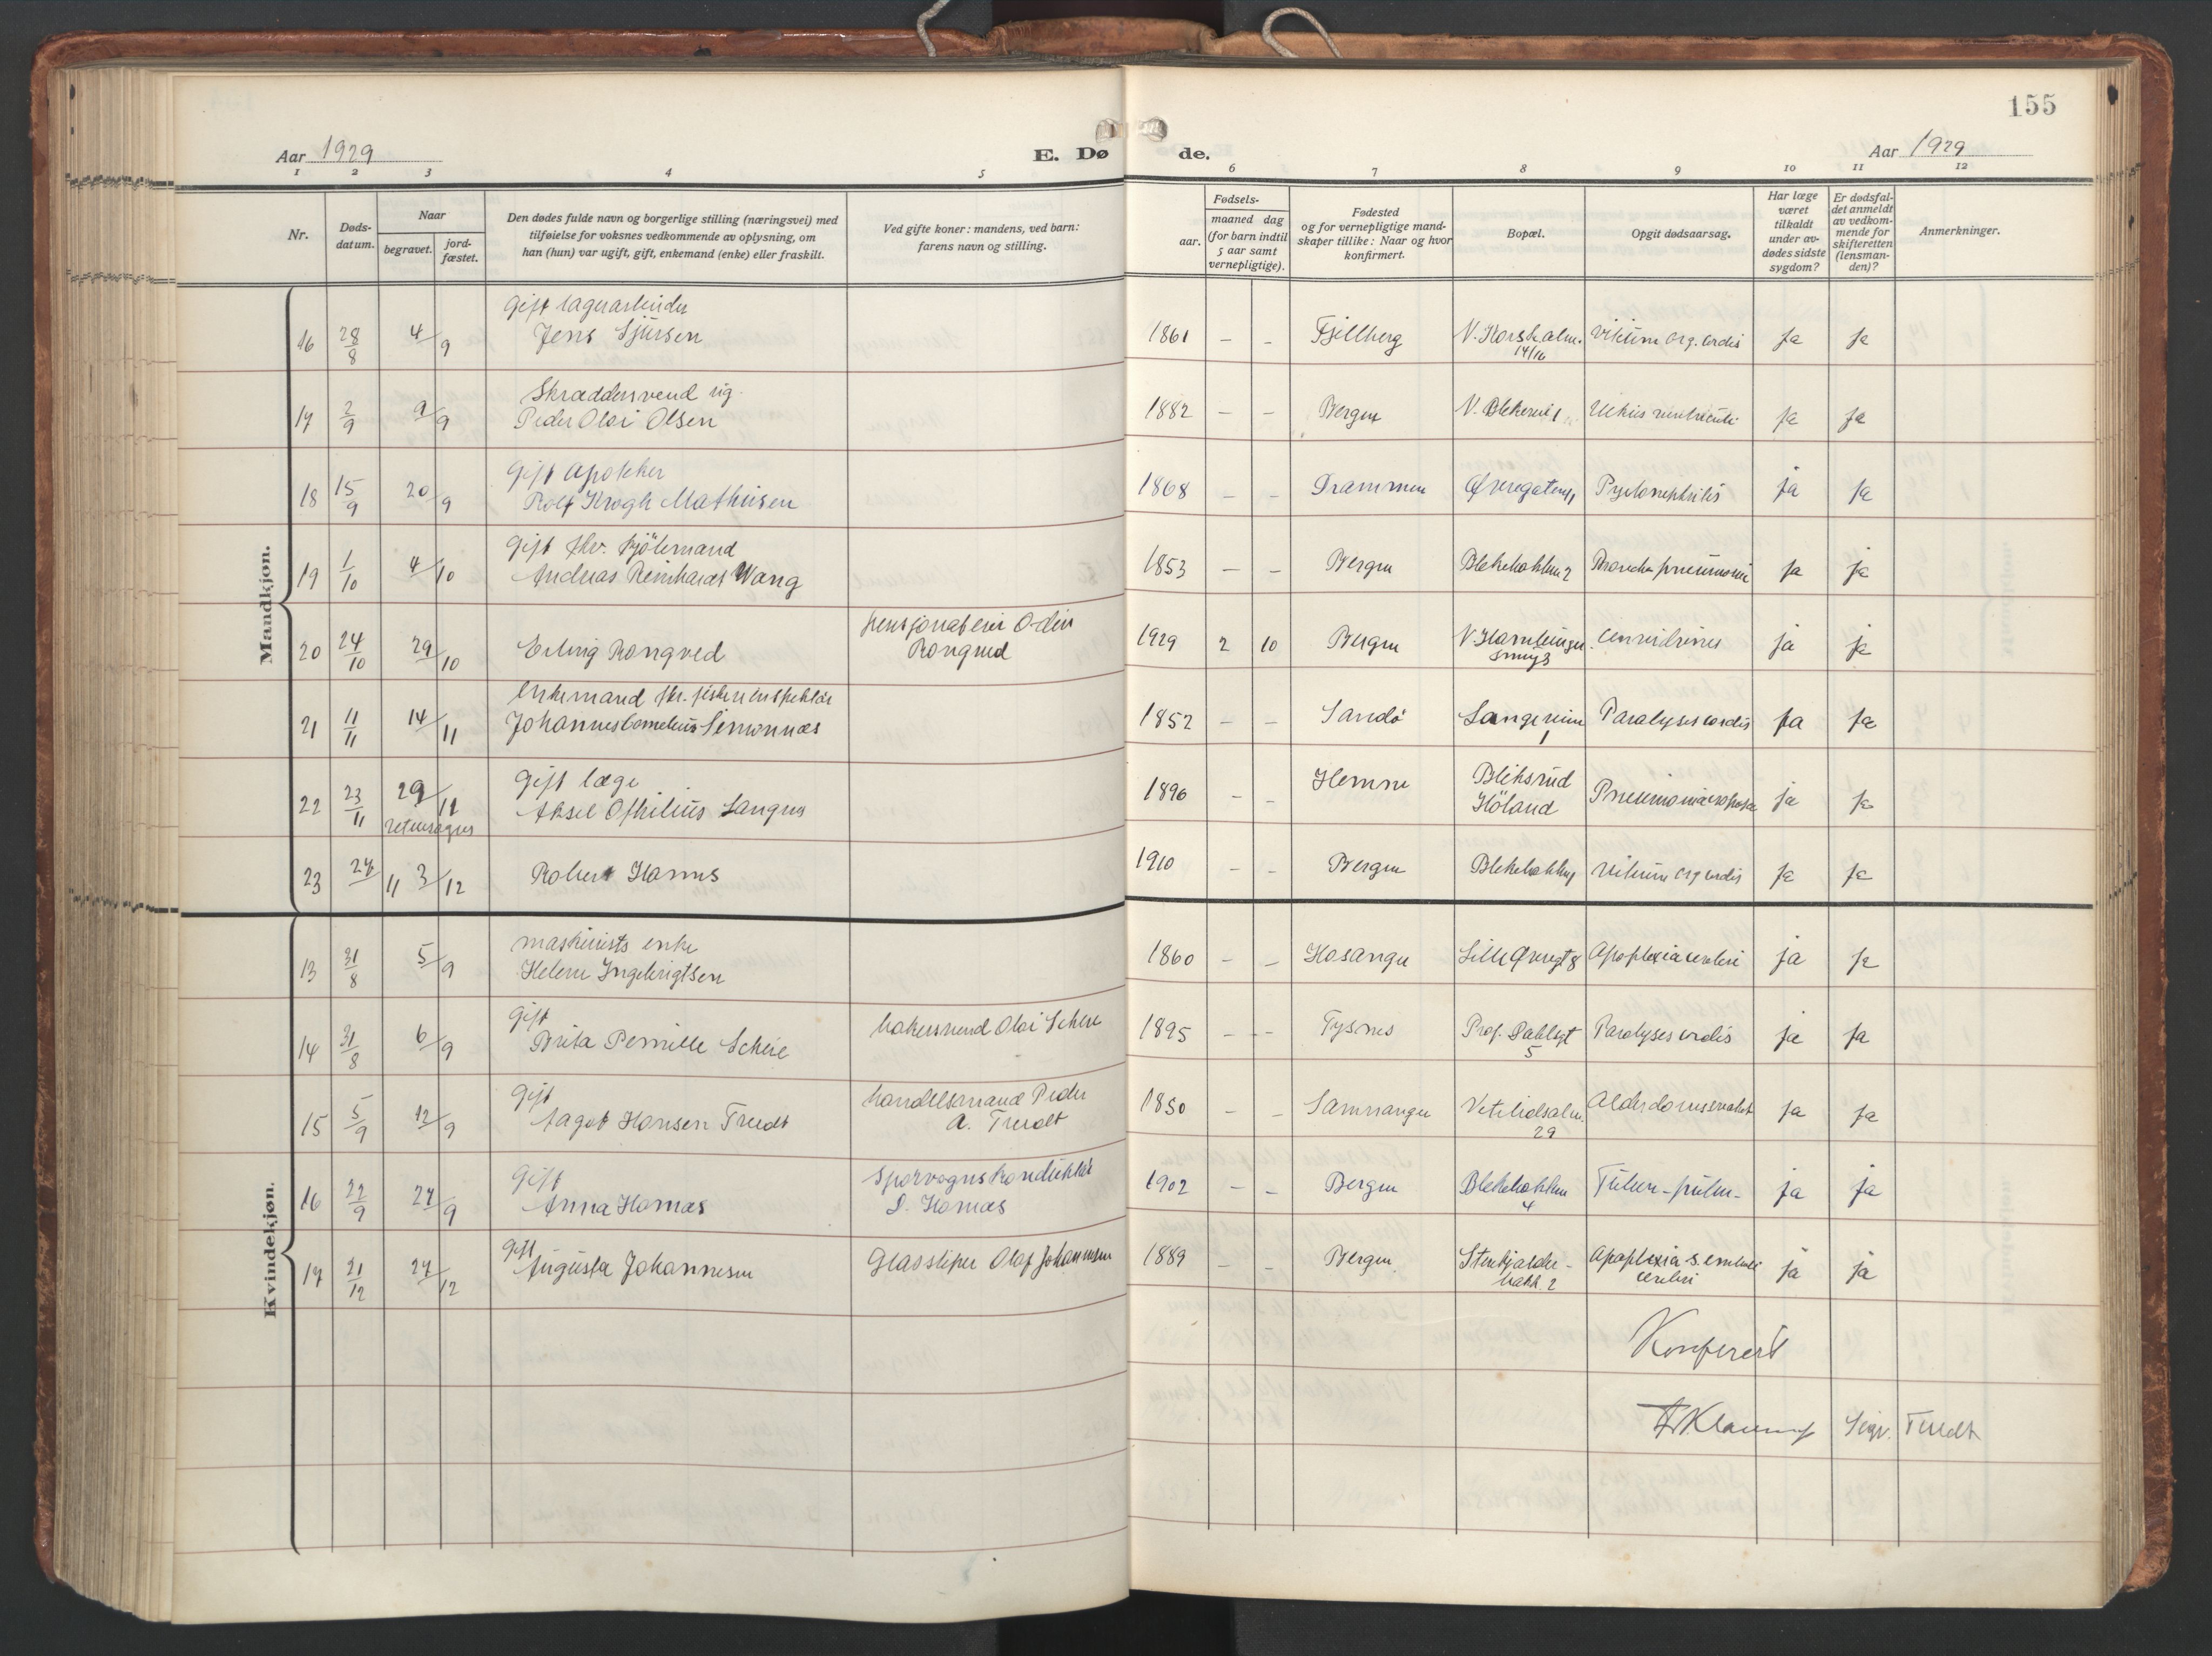 155
Aar 1929
E. Døde.
Aar 1929
1 2 3 4 5 6 7 8 9 10 11 12
Nr.
Døds-datum.
Naar
begravet.
jord-fæstet.
Den dødes fulde navn og borgerlige stilling (næringsvei) med
tilføielse for voksnes vedkommende av oplysning, om
han (hun) var ugift, gift, enkemand (enke) eller fraskilt.
Ved gifte koner: mandens, ved barn:
farens navn og stilling.
Fødsels-
aar.
maaned dag
(for barn indtil
5 aar samt
vernepligtige).
Fødested
og for vernepligtige mand-
skaper tillike: Naar og hvor
konfirmert.
Bopæl.
Opgit dødsaarsag.
Har læge
været
tilkaldt
under av-
dødes sidste
sygdom?
Er dødsfal-
det anmeldt
av vedkom-
mende for
skifteretten
(lensman-
den)?
Anmerkninger.
Mandkjøn.
Gift lagerarbeider
16 28/8 4/9 Jens Sjursen 1861 – – Fjellberg V. Korskalm. 14/16 Vitium org. cordis ja ja
Skræddersvend ug.
17 2/9 9/9 Peder Olai Olsen 1882 – – Bergen V. Blekevei 1 Ulcus ventriculi ja ja
Gift Apoteker
18 15/9 20/9 Rolf Krogh Mathiesen 1868 – – Drammen Øvregaten Pyelonephritis ja ja
Gift fhv. kjölemand
19 1/10 4/10 Andreas Reinhardt Wang 1853 – – Bergen Blekebakken 2 Broncho pneumoni ja ja
20 24/10 29/10 Erling Rongved pensjonateier Odin Rongved 1929 2 10 Bergen smug 3 ja ja
Enkemand
21 11/11 14/11 Johannes Cornelius Simonnæs 1852 – – Sandö 1 Paralysis cordis ja ja
Gift læge
22 23/11 29/11 Aksel Othilius 1896 – – Hemne Bliksrud Höland Pneumonia ja ja
23 28/11 3/12 Robert Hornes 1910 – – Bergen Blekebakken Vitium org cordis ja ja
Kvindekjøn.
maskinists enke
13 31/8 5/9 Helene Ingebrigtsen 1860 – – Hosanger Lille Øvregt 8 Apoplexia cerebri ja ja
Gift
14 31/8 6/9 Brita Pernille Scheie bakersvend Olai Scheie 1895 – – Tysnes Prof. Dahlsgt 5 Paralyses cordis ja ja
Gift
15 5/9 12/9 Aagot Hansen Tveidt handelsmand Peder A. Tveidt 1850 – – Samnanger Vetrlidsalm. 29 Alderdomssvakhet ja ja
Gift
16 22/9 27/9 Anna Hornæs Sporvognskonduktör S. Hornæs 1902 – – Bergen Blekebakken 4 Tuber-pulm- ja ja
Gift
17 21/12 27/12 Augusta Johannesen Glassliper Olaf Johannesen 1889 – – Bergen Stenkjælder-bakk. 2 Apoplexia s. emboli cerebri ja ja
Konferert
Sigv. Tveidt